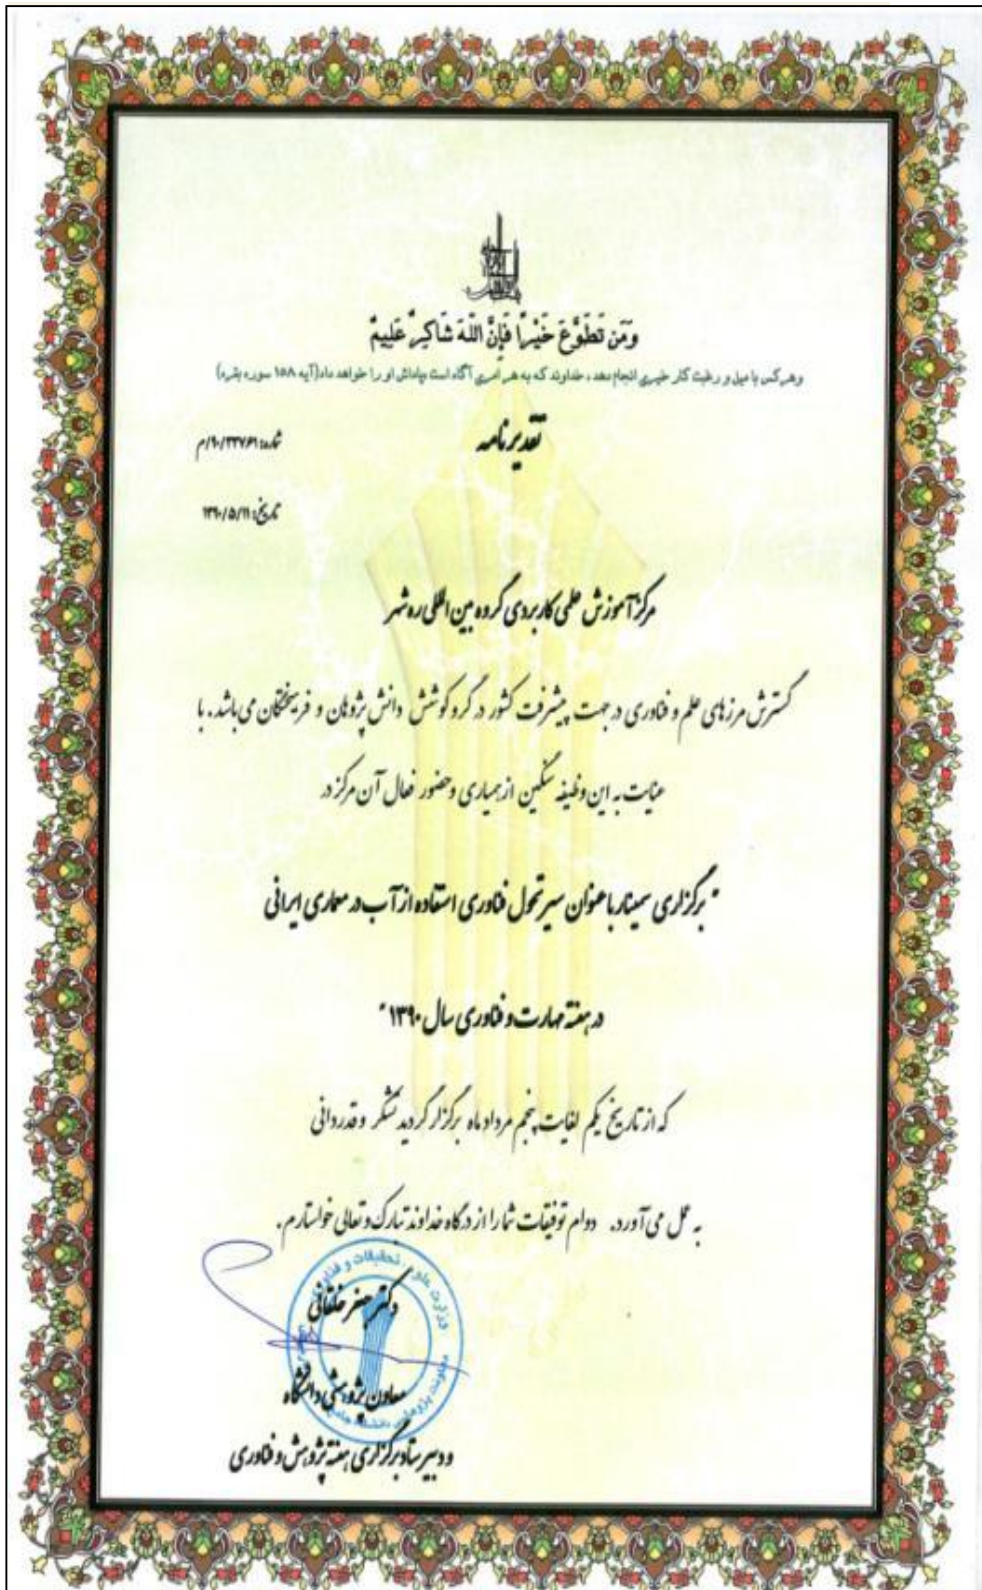 وَمَن تَطَوَّعَ خَیْراً فَإِنَّ اللّهَ شَاکِرٌ عَلِیمٌ
وهرکس با میل و رغبت کار خیری انجام دهد، خداوند که به هر امری آگاه است پاداش او را خواهد داد(آیه ۱۵۸ سوره بقره)
تقدیرنامه
شماره: ۹۰/۲۳۷۶۱/م
تاریخ: ۱۳۹۰/۵/۱۱
مرکز آموزش علمی کاربردی گروه بین المللی ره شهر
گسترش مرزهای علم و فناوری در جهت پیشرفت کشور در گرو کوشش دانش پژوهان و فریختگان می باشد. با
عنایت به این وظیفه سنگین از همیاری و حضور فعال آن مرکز در
" برگزاری سمینار با عنوان سیر تحول فناوری استفاده از آب در معماری ایرانی
در هفته مهارت و فناوری سال ۱۳۹۰ "
که از تاریخ یکم لغایت پنجم مرداد ماه برگزار گردید تشکر و قدردانی
به عمل می آورد. دوام توفیقات شما را از درگاه خداوند تبارک و تعالی خواستارم.
وزارت علوم، تحقیقات و فناوری
دکتر جعفر خلقانی
معاون پژوهشی دانشگاه
و دبیر ستاد برگزاری هفته پژوهش و فناوری